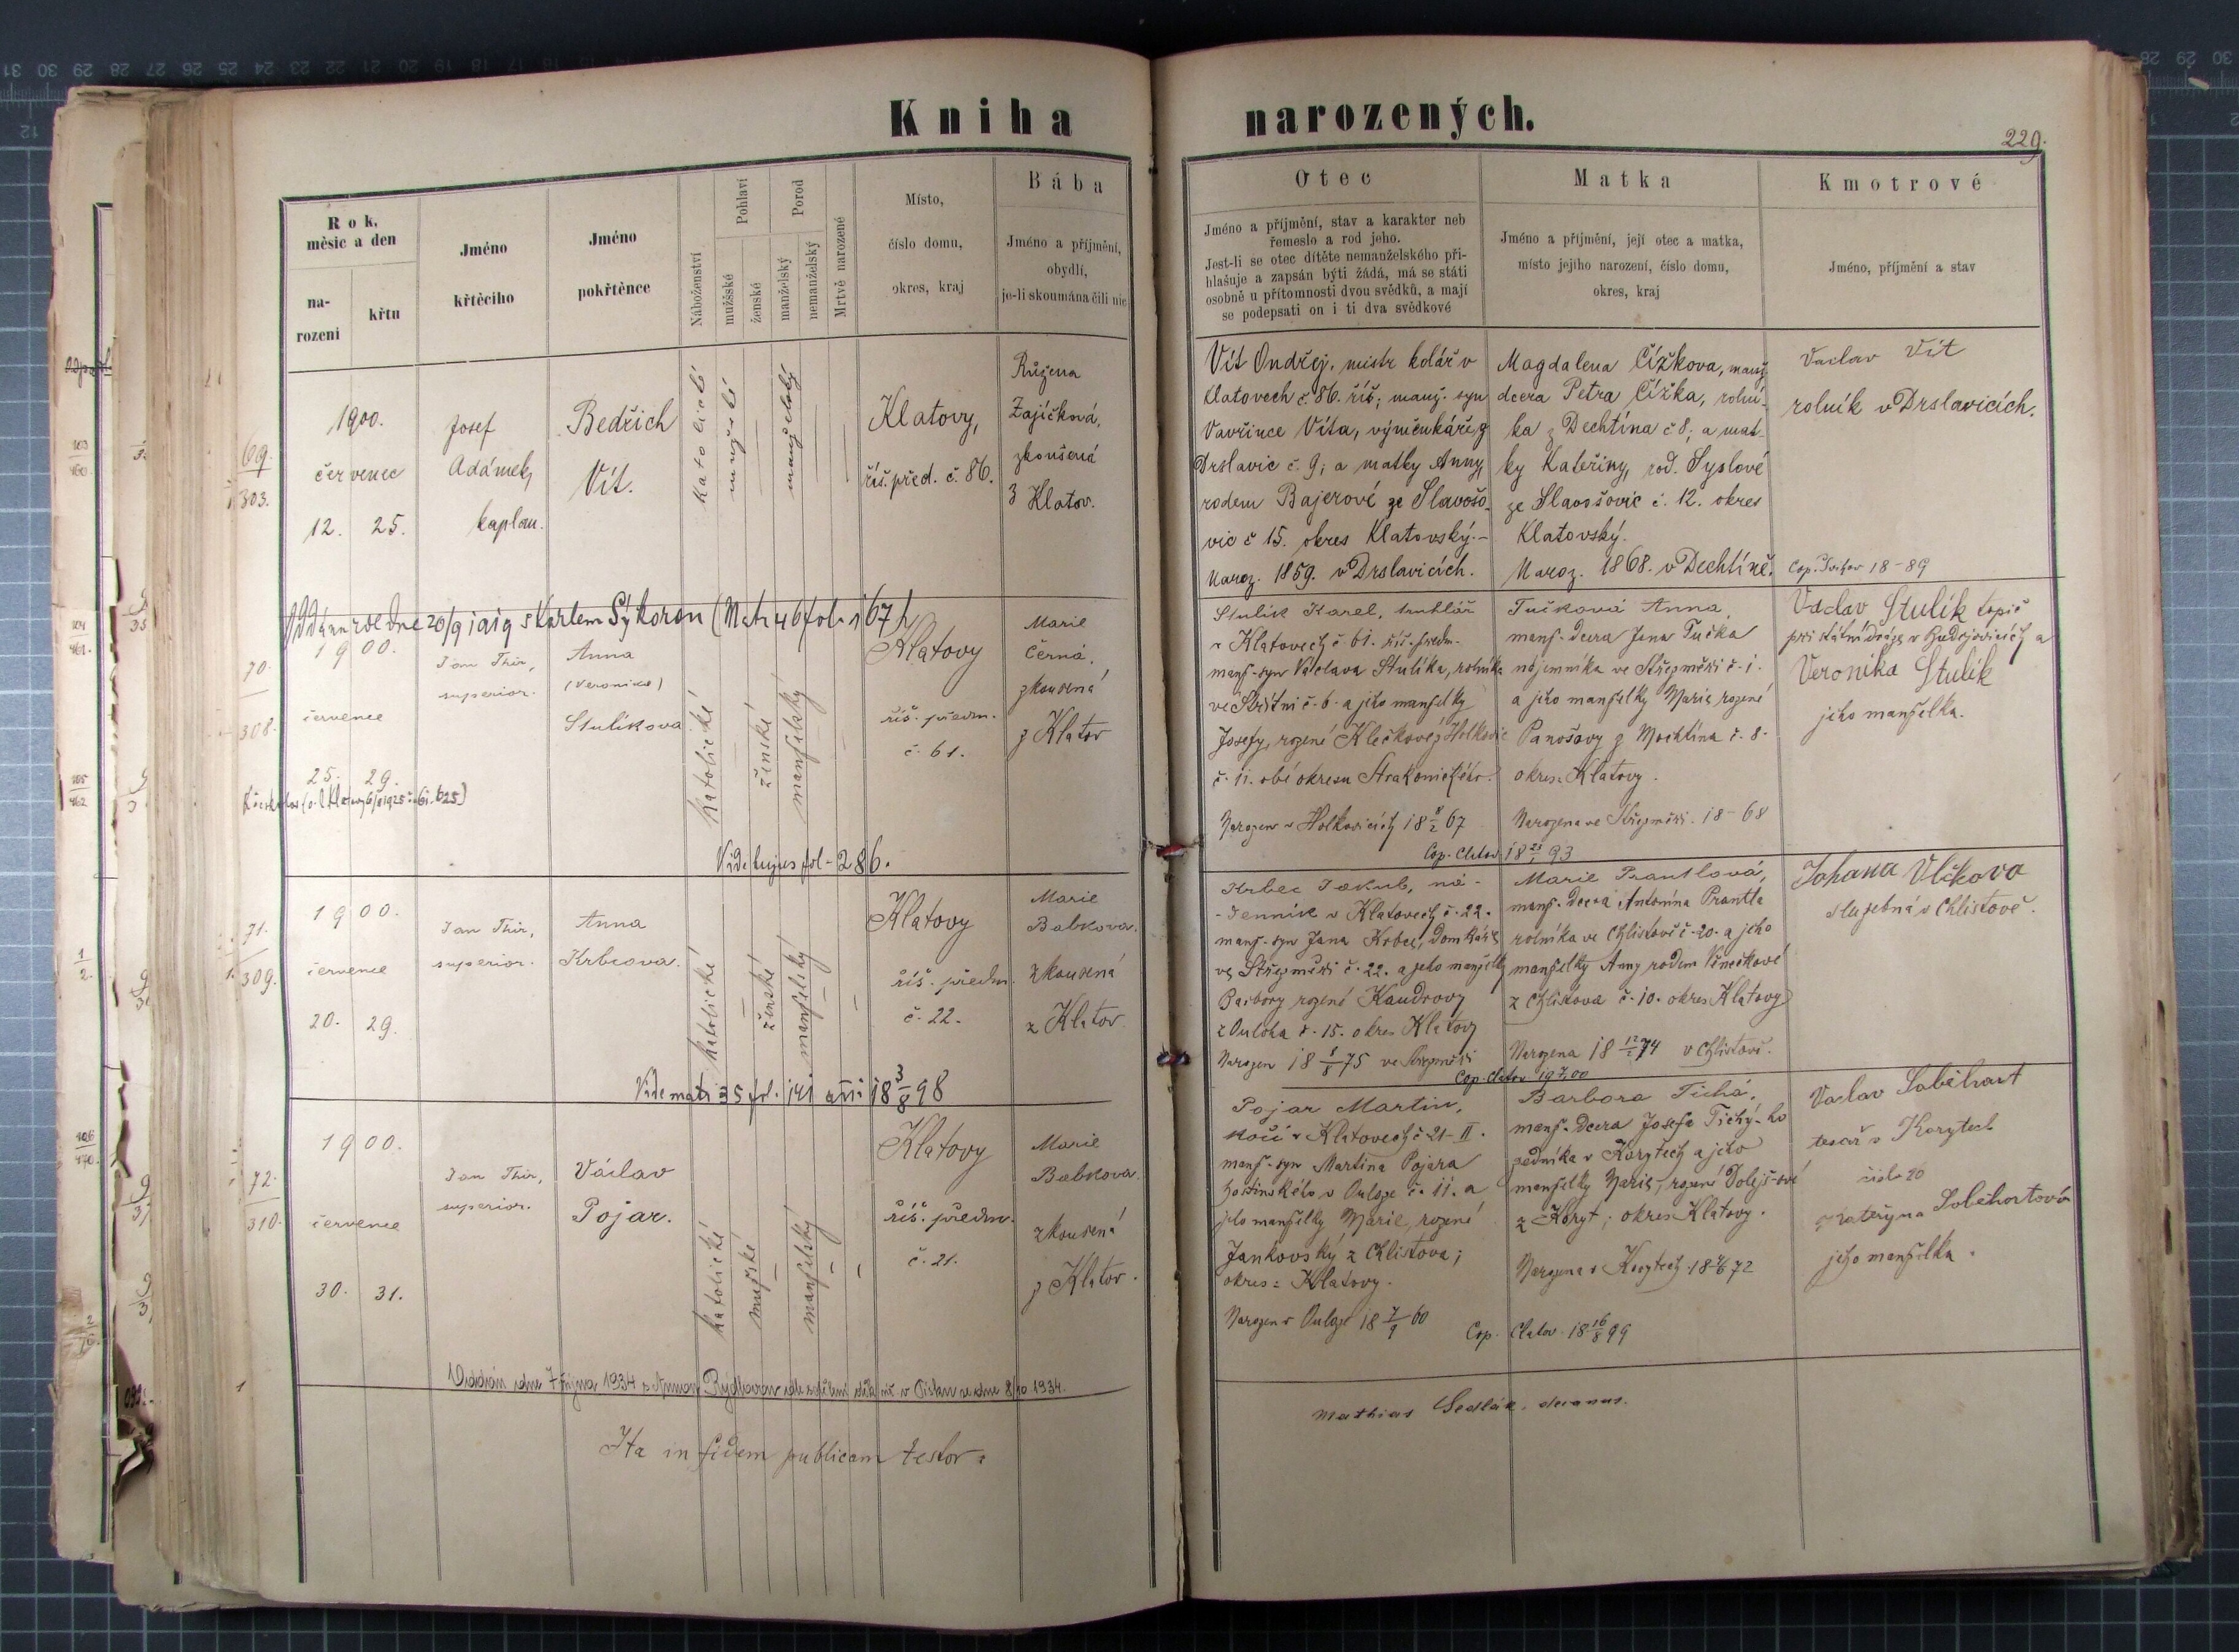 Kniha narozených.
229.
Rok, měsíc a den
na-
rození
křtu
Jméno
křtěcího
Jméno
pokřtěnce
Náboženství
Pohlaví
mužské
ženské
Porod
manželský
nemanželský
Mrtvě narozené
Místo,
číslo domu,
okres, kraj
Bába
Jméno a příjmění,
obydlí,
je-li skoumána čili nic
Otec
Jméno a příjmění, stav a karakter neb
řemeslo a rod jeho.
Jest-li se otec dítěte nemanželského při-
hlašuje a zapsán býti žádá, má se státi
osobně u přítomnosti dvou svědků, a mají
se podepsati on i ti dva svědkové
Matka
Jméno a příjmění, její otec a matka,
místo jejího narození, číslo domu,
okres, kraj
Kmotrové
Jméno, příjmění a stav
69.
303.
1900.
červenec
12. 25.
Josef
Adámek,
kaplan.
Bedřich
Vít.
katolické
mužské
manželský
Klatovy,
říš. před. č. 86.
Růžena
Zajíčková,
zkoušená
z Klatov.
Vít Ondřej, mistr kolář v
Klatovech č. 86. říš; manž. syn
Vavřince Víta, výměnkáře z
Drslavic č. 9; a matky Anny,
rodem Bajerové ze Slavošo-
vic č 15. okres Klatovský.-
Naroz. 1859. v Drslavicích.
Magdalena Čížkova, manž.
dcera Petra Čížka, rolní-
ka z Dechtína č 8; a mat-
ky Kateřiny, rod. Syslové
ze Slavošovic č. 12. okres
Klatovský.
Naroz. 1868. v Dechtíně.
Vaclav Vít
rolník v Drslavicích.
18-89
Oddána zde dne 20/9 1919 s Karlem Sýkorou (Matr 46 fol. 167)
70.
308.
1900.
července
25. 29.
Jan Thir,
superior.
Anna
(Veronika)
Stulíkova
katolické
ženské
manželský
Klatovy
říš. předm.
č. 61.
Marie
Černá,
zkoušená
z Klatov
Stulík Karel, truhlář
v Klatovech č 61. říš. předm.
manž. syn Václava Stulíka, rolníka
č. 6. a jeho manželky
Josefy, rozené Klečkové z Holkovic
č. 11. obé okresu Strakonického.
Narozen v Holkovicích 18 67
Tučková Anna,
manž. dcera Jana Tučka
nájemníka ve Střezměři č. 1.
a jeho manželky Marie, rozené
Panošovy z Mochtína č. 8.
okres. Klatovy.
Narozena ve Střezměři. 18 68
Cop. Clatov. 18 93
Václav Stulík topič
při státní dráze v Budějovicích a
Veronika Stulík
jeho manželka.
Vide hujus fol. 286.
71.
309.
1900.
července
20. 29.
Jan Thir,
superior.
Anna
Krbcova.
katolické
ženské
manželský
Klatovy
říš. předm.
č. 22.
Marie
Babkova.
zkoušená
z Klatov
Krbec Jakub, ná-
denník v Klatovech č. 22.
manž. syn Jana Krbce, domkáře
ve Střezměři č. 22. a jeho manželky
Barbory rozené Kaudrovy
č. 15. okres Klatovy
Narozen 18 75 ve Střezměři
Marie Prantlová,
manž. dcera Antonína Prantla
rolníka ve Chlistově č. 20. a jeho
manželky Anny rodem Věnečkové
z Chlistova č. 10. okres Klatovy
Narozena 18 74 v Chlistově.
Cop. Clatov
Johana Vlčkova
služebná v Chlistově.
Vide matr 35 fol. 141 18 3/8 98
72.
310.
1900.
července
30. 31.
Jan Thir,
superior.
Václav
Pojar.
katolické
mužské
manželský
Klatovy
říš. předm.
č. 21.
Marie
Babkova.
zkoušená
z Klatov.
Pojar Martin,
kočí v Klatovech č 21-II.
manž. syn Martina Pojara
hostinského v č. 11. a
jeho manželky Marie, rozené
Jankovský z Chlistova;
okres: Klatovy.
Narozen v 18 7/9 60
Barbora Tichá,
manž. dcera Josefa Tichý-ho
v Korytech a jeho
manželky Marie, rozené Dolejš-ové
z Koryt; okres Klatovy.
Narozena v Korytech 18 72
Cop. Clatov. 18 16/8 99
Vaclav Soběhart
tesař v Korytech
číslo 20
Kateřyna Sobehartová
jeho manželka.
Oddán dne 7 října 1934 s Annou Rýdlovou v Písku ze dne 8/10 1934.
Ita in fidem publicam testor:
Mathias Sedlák, decanus.